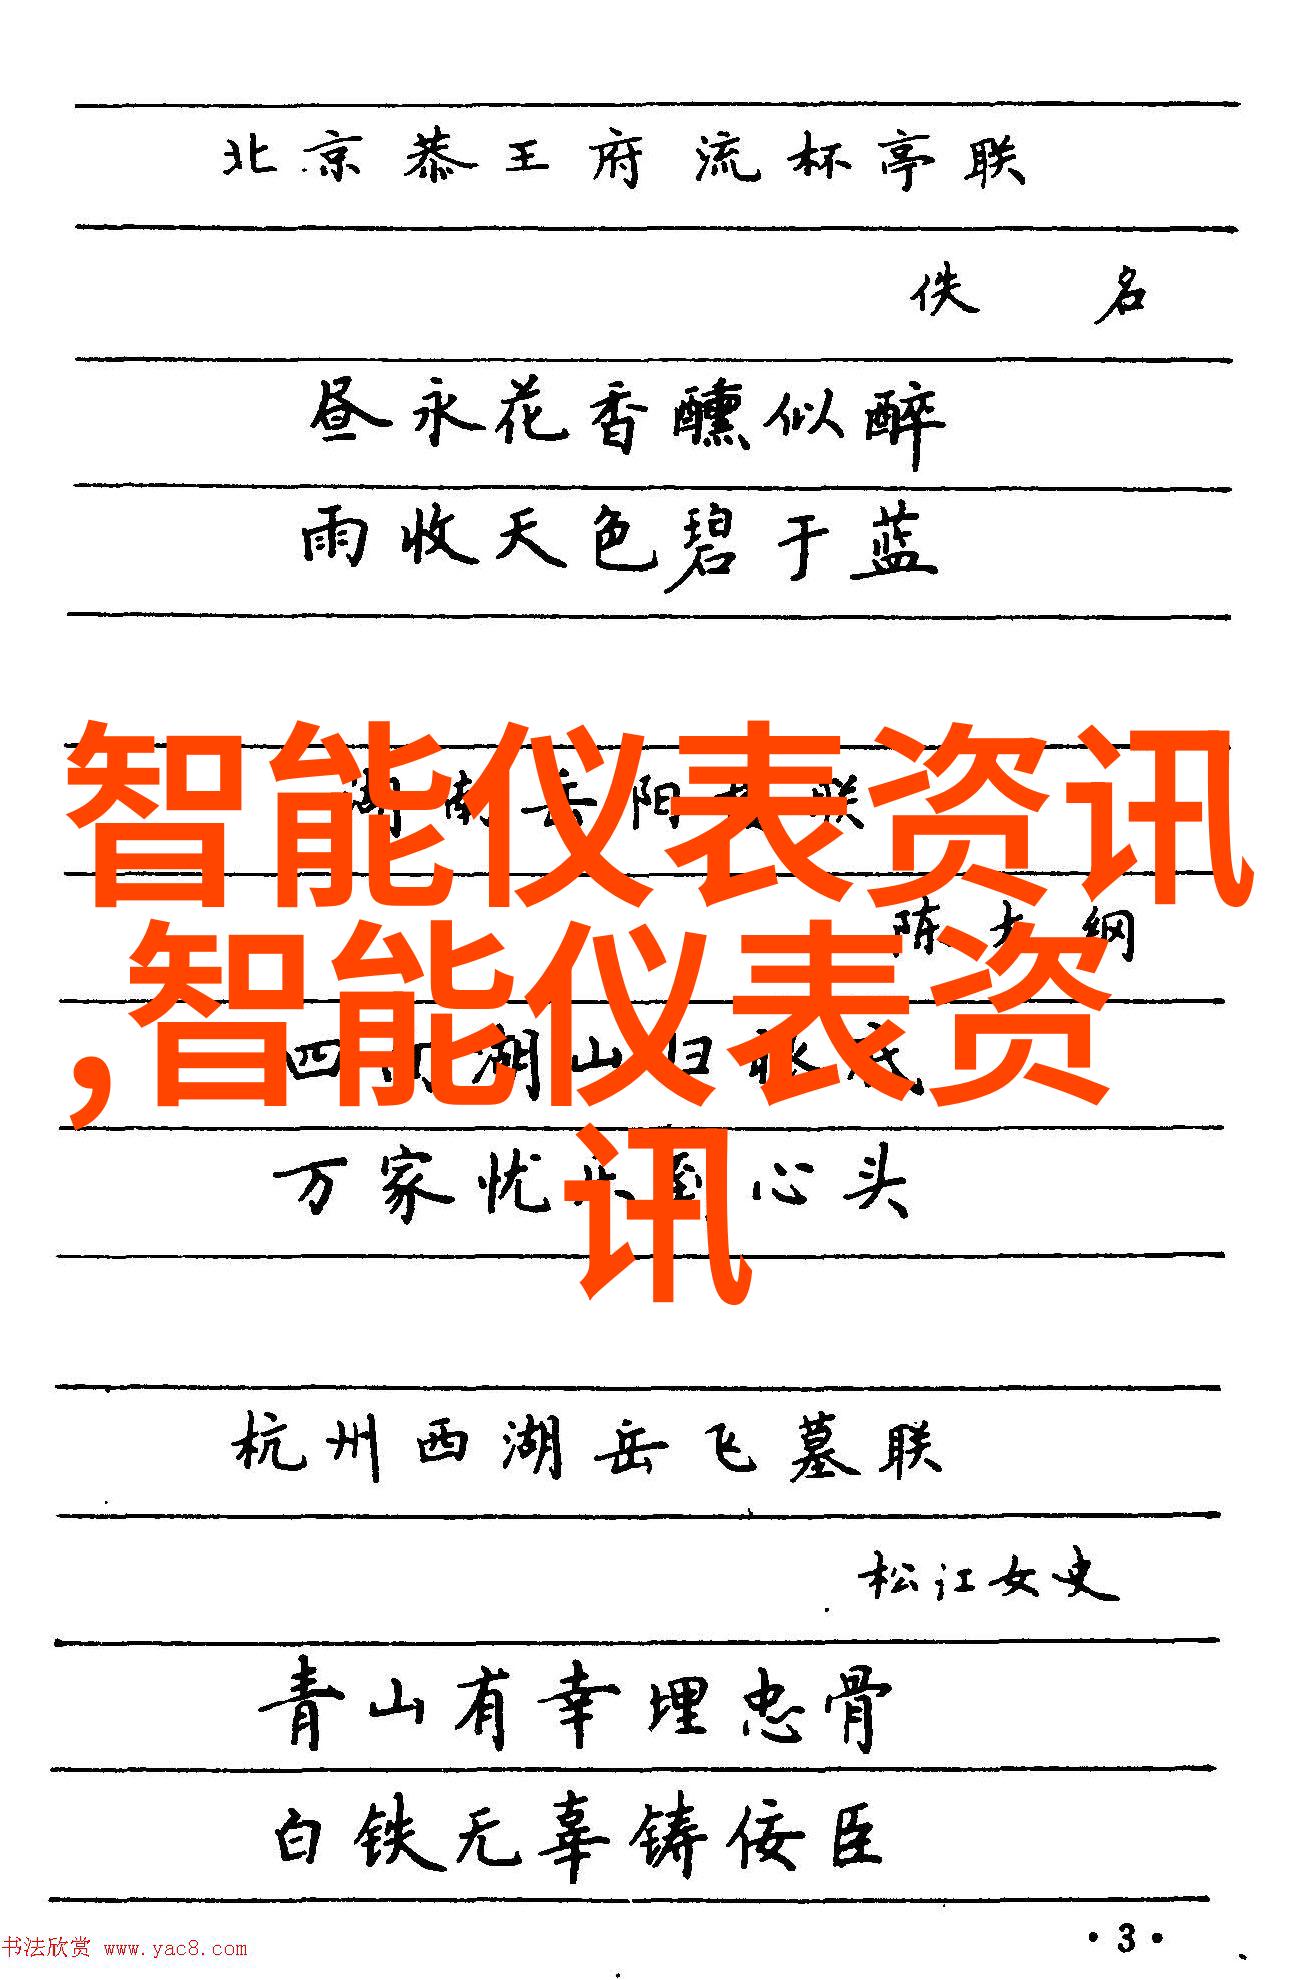 北京恭王府流杯亭联
佚名
昼永花香醺似醉
雨收天色碧于蓝
智能仪表资讯
湖南岳阳 联
陈大纲
,智能仪表资
四 湖山归 底
讯
万家忧 到心头
杭州西湖岳飞墓联
松江女史
青山有幸埋忠骨
白铁无辜铸佞臣
·3·
书法欣赏 www.yac8.com